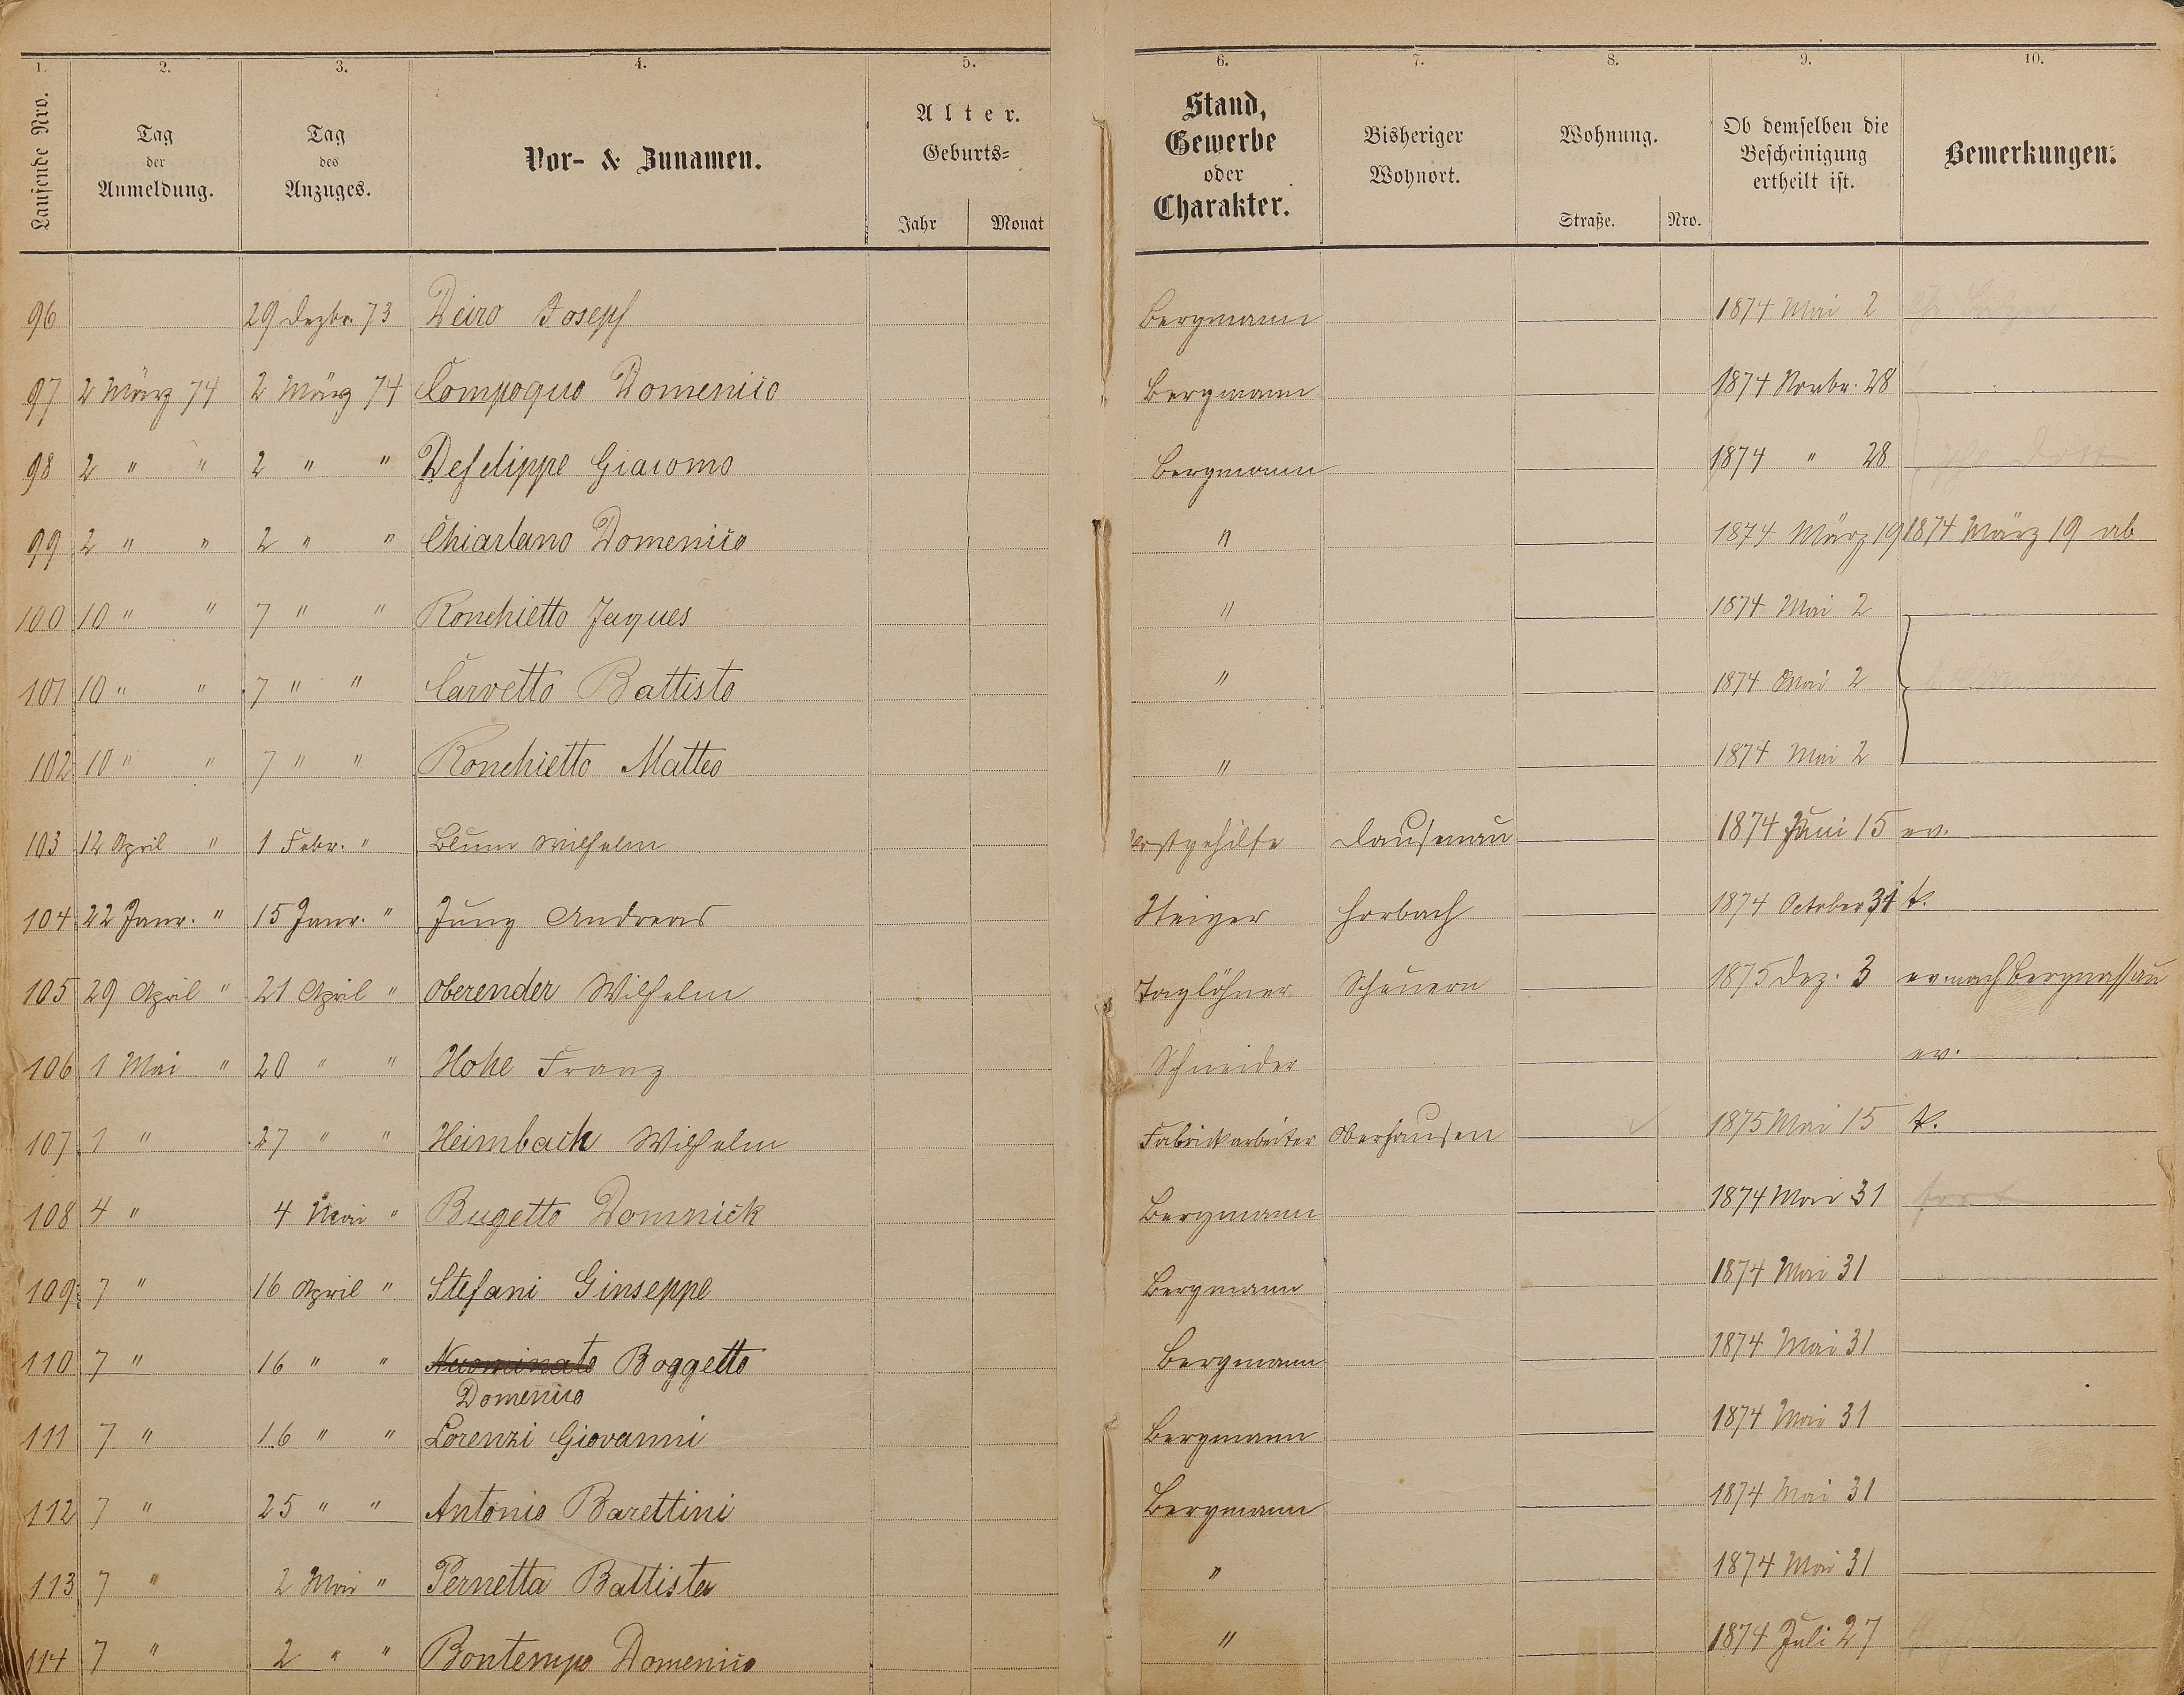 1. 2. 3. 4. 5. 6. 7. 8. 9. 10.
Laufende Nro. Tag der Anmeldung. Tag des Anzuges. Vor- & Zunamen. Alter. Geburts= Jahr Monat Stand, Gewerbe oder Charakter. Bisheriger Wohnort. Wohnung. Straße. Nro. Ob demselben die Bescheinigung ertheilt ist. Bemerkungen.
96 29 Dezbr. 73 Deiro Joseph Bergmann 1874 Mai 2
97 2 März 74 2 März 74 Compoquo Domenico Bergmann 1874 Novbr. 28
98 2 " " 2 " " Defelippe Giacomo Bergmann 1874 " 28
99 2 " " 2 " " Chiarlano Domenico " 1874 März 19 1874 März 19 ab
100 10 " " 7 " " Ronchietto Jaques " 1874 Mai 2
101 10 " " 7 " " Carvetto Battisto " 1874 Mai 2
102 10 " " 7 " " Ronchietto Matteo " 1874 Mai 2
103 12 April " 1 Febr. " Blum Wilhelm Postgehilfe Dausenau 1874 Juni 15 ev.
104 22 Janr. " 15 Janr. " Jung Andreas Steiger Horbach 1874 October 31 k.
105 29 April " 21 April " Oberender Wilhelm Taglöhner Scheuern 1875 Dez. 3 ev. nach Bergnassau
106 1 Mai " 20 " " Hohe Franz Schneider ev.
107 1 " 27 " " Heimbach Wilhelm Fabrickarbeiter Oberhausen 1875 Mai 15 k.
108 4 " 4 Mai " Bugetto Domnick Bergmann 1874 Mai 31 fort
109 7 " 16 April " Stefani Ginseppe Bergmann 1874 Mai 31
110 7 " 16 " " Boggetto Bergmann 1874 Mai 31
Domenico
111 7 " 16 " " Lorenzi Giovanni Bergmann 1874 Mai 31
112 7 " 25 " " Antonio Barettini Bergmann 1874 Mai 31
113 7 " 2 Mai " Pernetta Battista " 1874 Mai 31
114 7 " 2 " " Bontempo Domenico " 1874 Juli 27